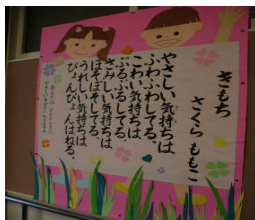 きもち
さくら ももこ
やさしい気持ちは
ふわふわしてる。
こわい気持ちは
ぶるぶるしてる。
さみしい気持ちは
ほそぼそしてる。
うれしい気持ちは
ぴょんぴょんはねる。